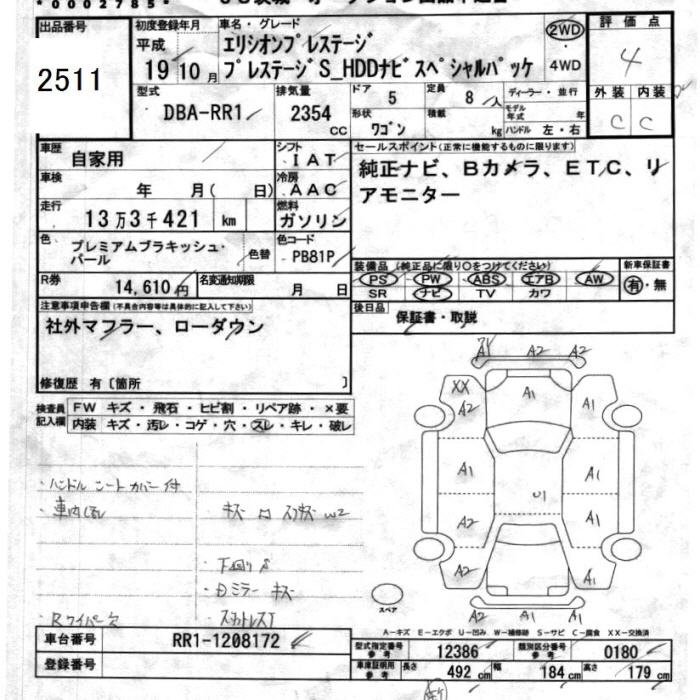 *0002785*
出品番号
2511
初度登録年月
平成
19 10 月
車名・グレード
エリシオンプレステージ
プレステージS_HDDナビスペシャルパッケ
2WD
4WD
評価点
4
外装 内装
C C
型式
DBA-RR1
排気量
2354
CC
ドア 5
定員 8 人
形状 ワゴン
積載 kg
ディーラー・並行
モデル年式 年
ハンドル 左・右
車歴
自家用
シフト
IAT
セールスポイント(正常に機能するものに限ります)
純正ナビ、Bカメラ、ETC、リ
アモニター
車検
年 月( 日)
冷房
AAC
走行
13万3千421 km
燃料
ガソリン
色
プレミアムブラキッシュ・
パール
色替
色コード
PB81P
装備品(純正品に限り○をつけてください)
PS PW ABS エアB AW
SR ナビ TV カワ
新車保証書
有・無
R券
14,610円
名変通知期限
月 日
後日品
保証書・取説
注意事項申告欄(不具合内容等は具体的に記入して下さい)
社外マフラー、ローダウン
修復歴 有〔箇所 〕
検査員
記入欄
FW キズ・飛石・ヒビ割・リペア跡・×要
内装 キズ・汚レ・コゲ・穴・スレ・キレ・破レ
・ハンドル シートカバー付
A1 A2 A2
XX
A2 A1 A1
A1 A1
U1
A2 A1
A2 A1
A2 A1 A2
下回りS
キズ
Rワイパー欠
スペア
A-キズ E-エクボ U-凹み W-補修跡 S-サビ C-腐食 XX-交換済
車台番号
RR1-1208172
登録番号
型式指定番号
参考
12386
類別区分番号
参考
0180
車庫証明用
参考
長さ 492 cm 幅 184 cm 高さ 179 cm